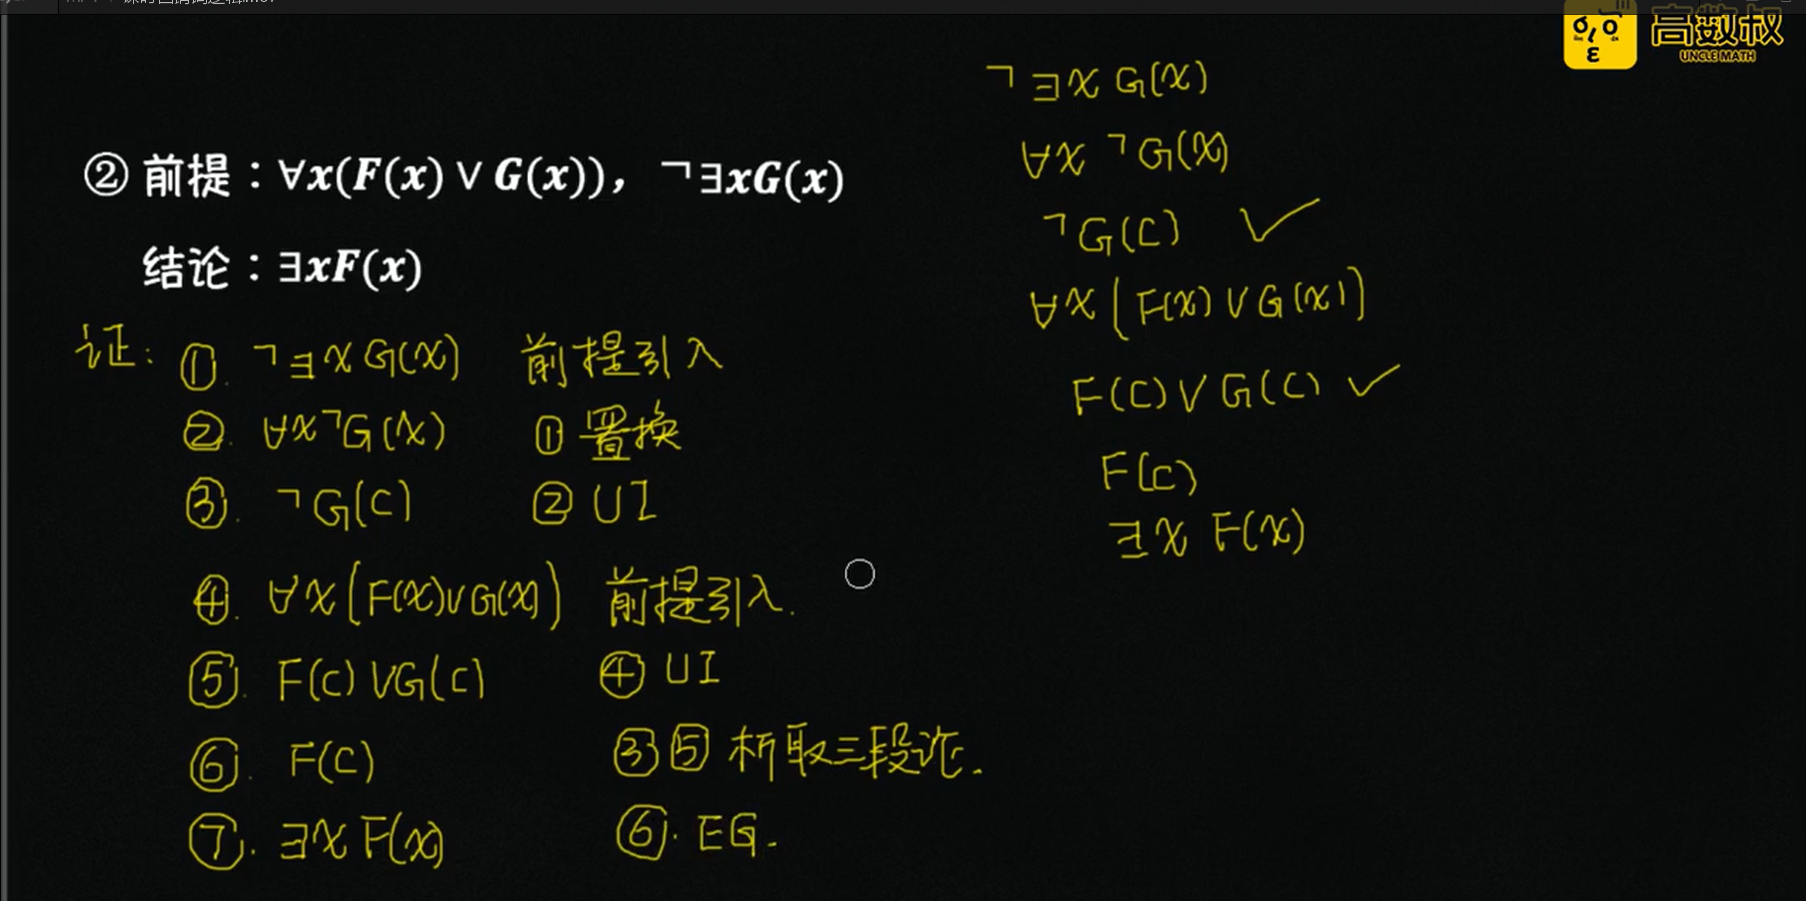 高数叔
UNCLE MATH
② 前提：∀x(F(x) ∨ G(x))， ¬∃xG(x)
结论：∃xF(x)
证：①. ¬∃x G(x) 前提引入
②. ∀x¬G(x) ① 置换
③. ¬G(C) ② UI
④. ∀x(F(x)∨G(x)) 前提引入.
⑤. F(C)∨G(C) ④ UI
⑥. F(C) ③⑤ 析取三段论.
⑦. ∃x F(x) ⑥. EG.
¬∃x G(x)
∀x ¬G(x)
¬G(C) ✓
∀x(F(x)∨G(x))
F(C)∨G(C) ✓
F(C)
∃x F(x)